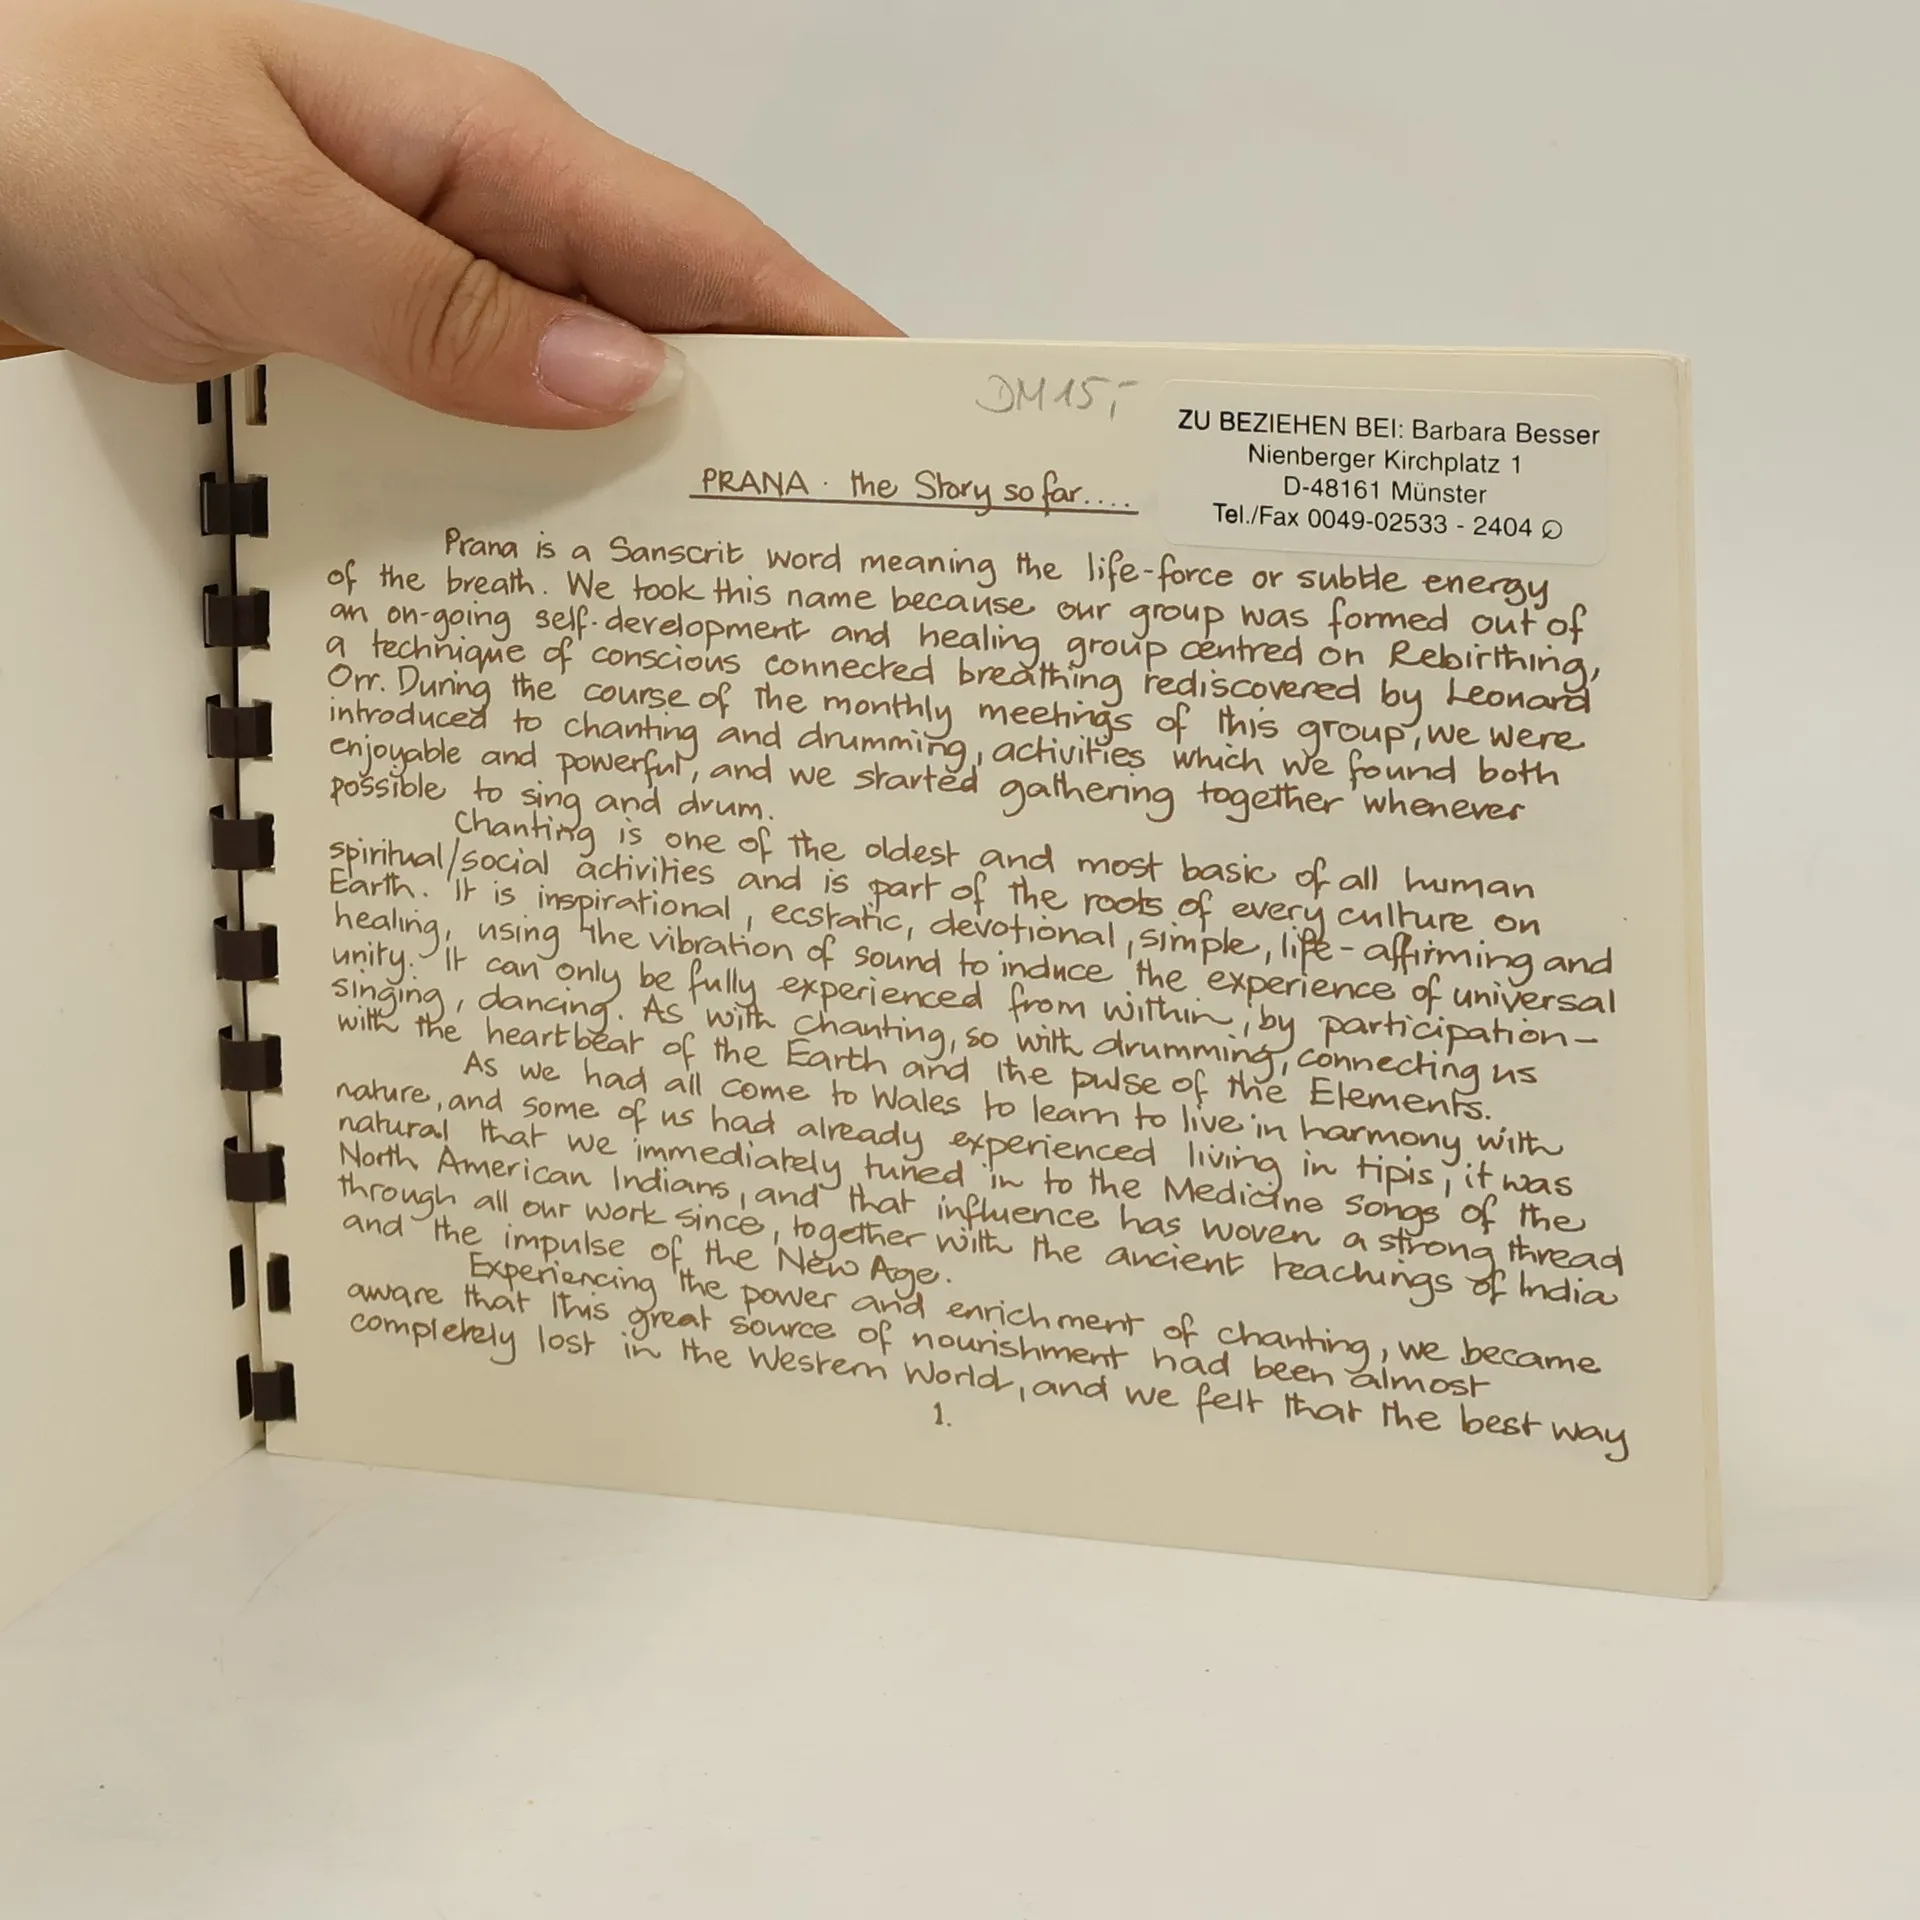 DM 15,-
ZU BEZIEHEN BEI: Barbara Besser
Nienberger Kirchplatz 1
D-48161 Münster
Tel./Fax 0049-02533 - 2404
PRANA · the Story so far....
Prana is a Sanscrit word meaning the life-force or subtle energy
of the breath. We took this name because our group was formed out of
an on-going self-development and healing group centred on Rebirthing,
a technique of conscious connected breathing rediscovered by Leonard
Orr. During the course of the monthly meetings of this group, we were
introduced to chanting and drumming, activities which we found both
enjoyable and powerful, and we started gathering together whenever
possible to sing and drum.
Chanting is one of the oldest and most basic of all human
spiritual/social activities and is part of the roots of every culture on
Earth. It is inspirational, ecstatic, devotional, simple, life-affirming and
healing, using the vibration of sound to induce the experience of universal
unity. It can only be fully experienced from within, by participation -
singing, dancing. As with chanting, so with drumming, connecting us
with the heartbeat of the Earth and the pulse of the Elements.
As we had all come to Wales to learn to live in harmony with
nature, and some of us had already experienced living in tipis, it was
natural that we immediately tuned in to the Medicine Songs of the
North American Indians, and that influence has woven a strong thread
through all our work since, together with the ancient teachings of India
and the impulse of the New Age.
Experiencing the power and enrichment of chanting, we became
aware that this great source of nourishment had been almost
completely lost in the Western World, and we felt that the best way
1.